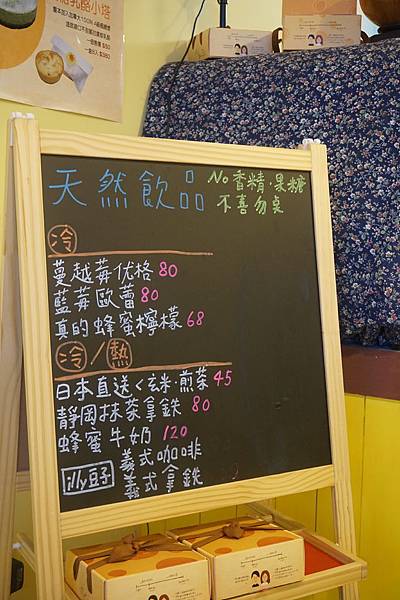 天然飲品 No香精·果糖
不喜勿桌
冷
蔓越莓优格 80
藍莓歐蕾 80
真的蜂蜜檸檬 68
冷/熱
日本直送<玄米·煎茶 45
靜岡抹茶拿鉄 80
蜂蜜牛奶 120
illy豆子 義式咖啡
義式拿鉄